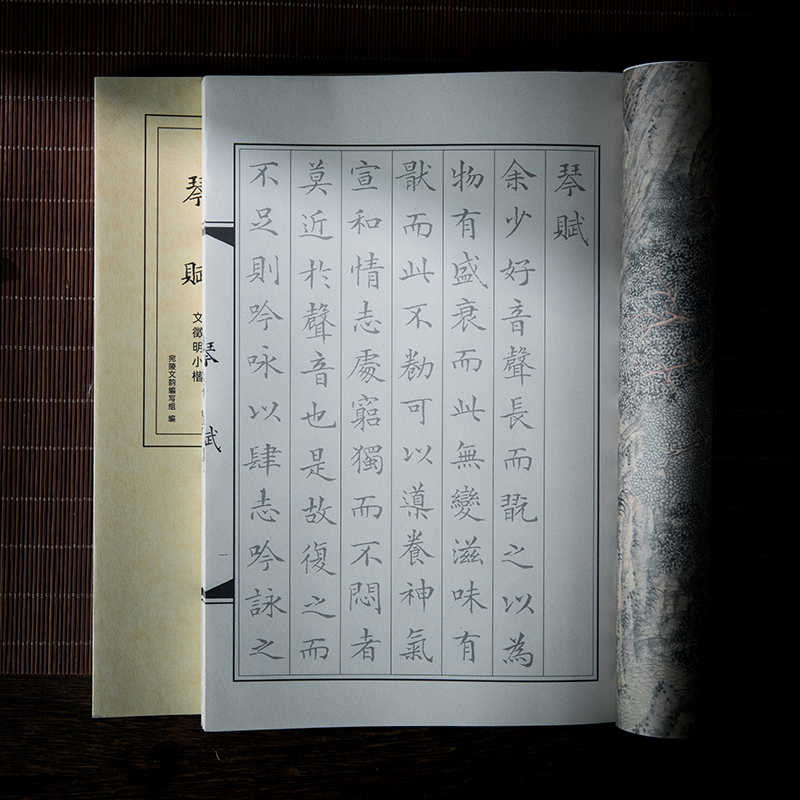 琴賦
余少好音聲長而翫之以為
物有盛衰而此無變滋味有
猒而此不勌可以導養神氣
宣和情志處窮獨而不悶者
莫近於聲音也是故復之而
不足則吟咏以肆志吟詠之
琴賦
一
琴賦
文徵明小楷
宛陵文韵编写组 编